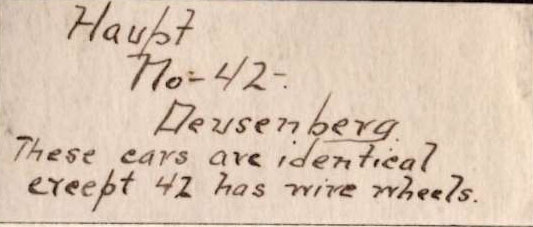 Haupt
No-42-.
Deusenberg
These cars are identical
except 42 has wire wheels.